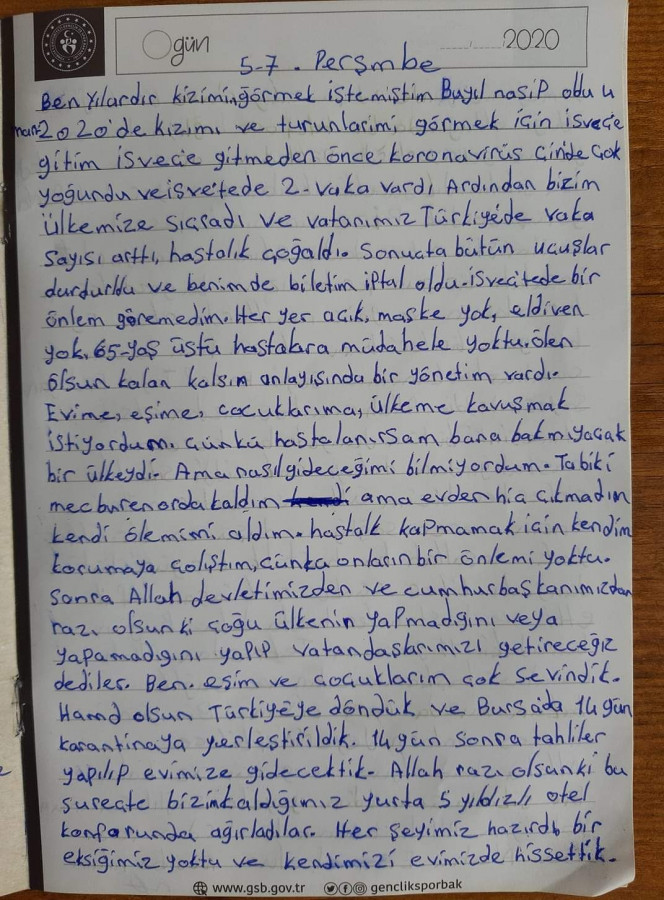 gün
2020
5-7. Perşmbe
Ben yılardır kizimi görmek istemiştim Buyıl nasip oldu u
man 2020'de kızımı ve turunlarimi görmek için isveçe
gitim isveçe gitmeden önce koronavirüs çinde çok
yoğundu ve isvetede 2-vaka vardı Ardından bizim
ülkemize sıçradı ve vatanımız Türkiyede vaka
sayısı arttı, hastalık çoğaldı. Sonuçta bütün uçuşlar
durduruldu ve benimde biletim iptal oldu. isveçtede bir
önlem göremedim. Her yer açık, maske yok, eldiven
yok, 65-yaş üstü hastalara müdahele yoktu. ölen
ölsün kalan kalsın anlayısında bir yönetim vardı.
Evime, eşime, çocuklarıma, ülkeme kavuşmak
istiyordum. çünkü hastalanırsam bana bakmıyacak
bir ülkeydi. Ama nasıl gideceğimi bilmiyordum. Tabiki
mecburen orda kaldım ama evden hiç çıkmadım
kendi ölemimi aldım. hastalk kapmamak için kendim
korumaya çalıştım, çünkü onların bir önlemi yoktu.
Sonra Allah devletimizden ve cumhurbaşkanımızdan
razı olsun ki çoğu ülkenin yapmadığını veya
yapamadığını yapıp vatandaşlarımızı getireceğiz
dediler. Ben. eşim ve çocuklarım çok sevindik.
Hamd olsun Türkiyeye döndük ve Bursada 14 gün
karantinaya yerleştirildik. 14 gün sonra tahliler
yapılıp evimize gidecektik. Allah razı olsunki bu
sureçte bizim kaldığımız yurta 5 yıldızlı otel
konforunda ağırladılar. Her şeyimiz hazırdı, bir
eksiğimiz yoktu ve kendimizi evimizde hissettik.
www.gsb.gov.tr gencliksporbak